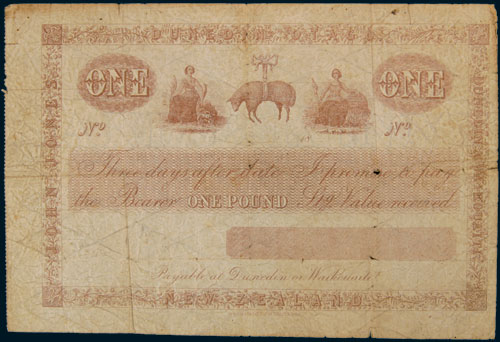 DUNEDIN OTAGO
JOHN JONES
ONE
ONE
No
No
Three days after date I promise to pay
the Bearer ONE POUND Stg Value received
Payable at Dunedin or Waikouaiti
NEW ZEALAND